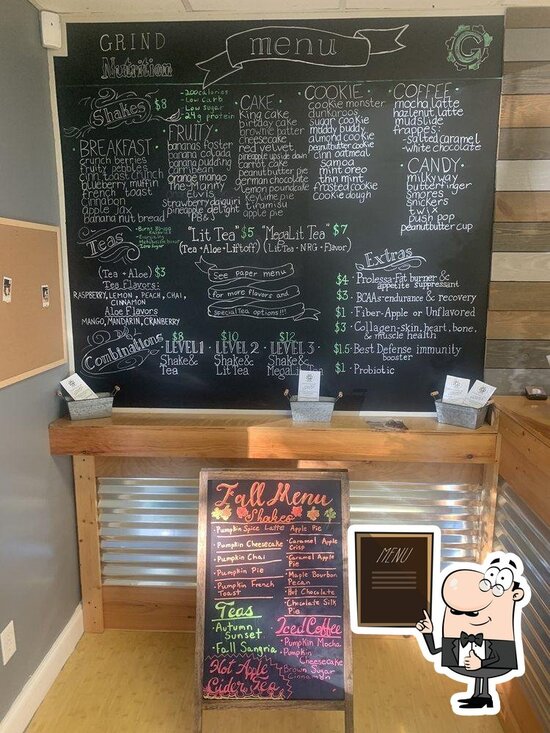 GRIND
Nutrition
menu
G
Shakes $8
- 200 calories
- Low carb
- Low sugar
- 24g protein
BREAKFAST
crunch berries
fruity pebbles
cinn toast crunch
blueberry muffin
French toast
Cinnabon
apple jax
banana nut bread
FRUITY
bananas foster
banana colada
banana pudding
carribean
orange mango
The Manny
Elvis
strawberry daiquiri
pineapple delight
PB & J
CAKE
king cake
birthday cake
brownie batter
cheesecake
red velvet
pineapple upside down
carrot cake
peanutbutter pie
german chocolate
lemon poundcake
keylime pie
tiramisu
apple pie
COOKIE
cookie monster
dunkaroos
sugar cookie
muddy buddy
almond cookie
peanutbutter cookie
cinn oatmeal
samoa
mint oreo
thin mint
frosted cookie
cookie dough
COFFEE
mocha latte
hazlenut latte
mudslide
frappes:
- salted caramel
- white chocolate
CANDY
milkyway
butterfinger
smores
snickers
twix
push pop
peanutbutter cup
Teas
(Tea + Aloe) $3
Tea Flavors:
RASPBERRY, LEMON, PEACH, CHAI,
CINNAMON
Aloe Flavors
MANGO, MANDARIN, CRANBERRY
"Lit Tea" $5 "MegaLit Tea" $7
(Tea + Aloe + Liftoff) (LitTea + NRG + Flavor)
See paper menu
for more flavors and
special Tea options!!!
Extras
$4 • Prolessa - Fat burner &
appetite suppressant
$3 • BCAAs - endurance & recovery
$1 • Fiber - Apple or Unflavored
$3 • Collagen - skin, heart, bone,
& muscle health
$1.5 • Best Defense immunity
booster
$1 • Probiotic
Combinations
$8
LEVEL 1 •
Shake &
Tea
$10
LEVEL 2 •
Shake &
Lit Tea
$12
LEVEL 3 •
Shake &
MegaLit Tea
Fall Menu
Shakes
• Pumpkin Spice Latte
• Pumpkin Cheesecake
• Pumpkin Chai
• Pumpkin Pie
• Pumpkin French
Toast
Apple Pie
• Caramel Apple
Crisp
• Caramel Apple
Pie
• Maple Bourbon
Pecan
• Hot Chocolate
• Chocolate Silk
Pie
Teas
• Autumn
Sunset
• Fall Sangria
Iced Coffee
• Pumpkin Mocha
• Pumpkin
Cheesecake
• Brown Sugar
Cinnamon
Hot Apple
Cider Tea
MENU